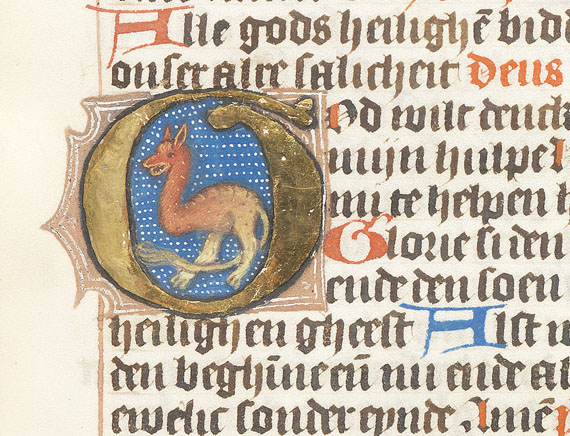 Alle gods heilighē bidd
onser alre salicheit Deus
God wilt denck
mijn hulpe
mi te helpen h
Glorie si den
ende den soen
heilighen gheest Alst
den beghīne eñ nu ende al
ewelic sonder eynde Amē